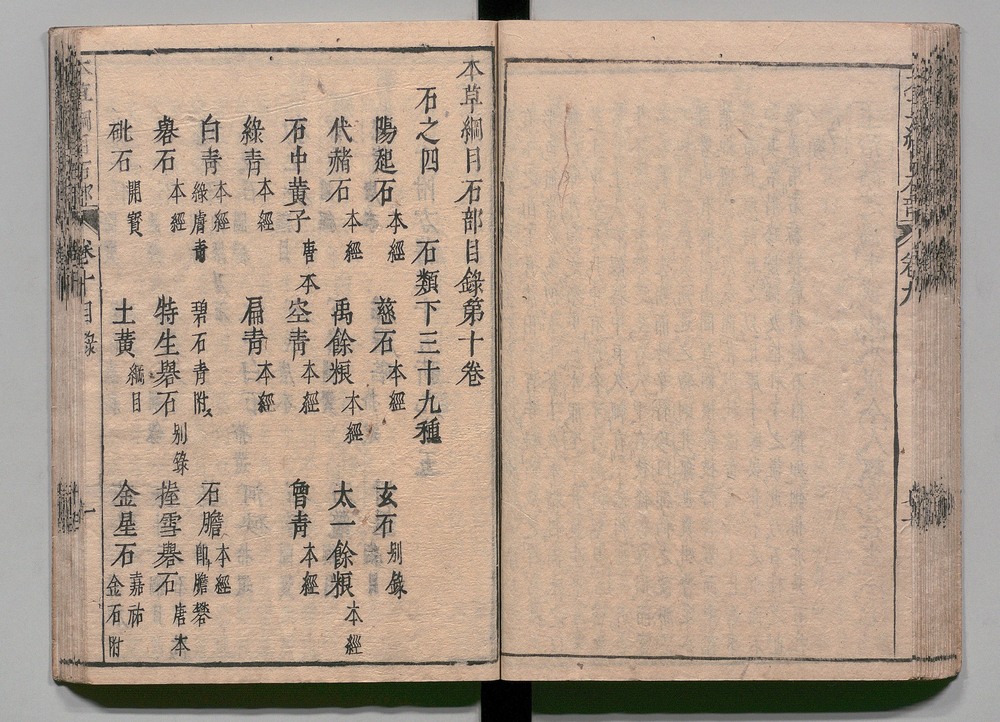 本草綱目石部目錄第十卷
石之四 石類下三十九種
陽起石本經 慈石本經 玄石别錄
代赭石本經 禹餘粮本經 太一餘粮本經
石中黄子唐本 空青本經 曾青本經
綠青本經 扁青本經
白青本經綠膚青 碧石青附 石膽本經即膽礬
礜石本經 特生礜石别錄 握雪礜石唐本
砒石開寳 土黄綱目 金星石嘉祐金石附
卷十目錄 一